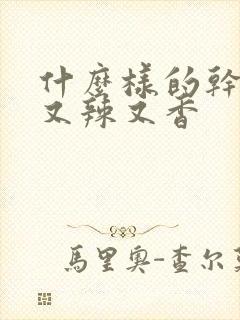 什麼樣的幹
又辣又香
馬里奧-查尔